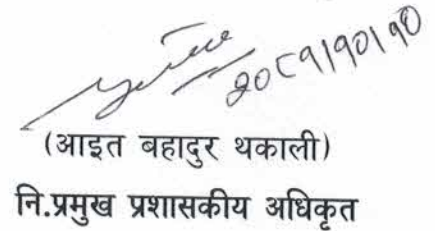 २०८१|१०|१०
(आइत बहादुर थकाली)
नि.प्रमुख प्रशासकीय अधिकृत